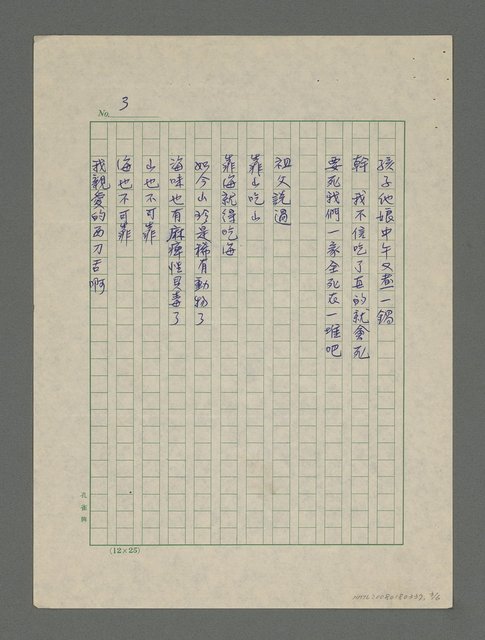 No. 3
孩子他娘中午又煮一鍋
幹 我不信吃了真的就會死
要死我們一家全死在一堆吧
祖父說過
靠山吃山
靠海就得吃海
如今山珍是稀有動物了
海味也有麻痺性貝毒了
山也不可靠
海也不可靠
我親愛的西刀舌啊
孔雀牌
(12×25)